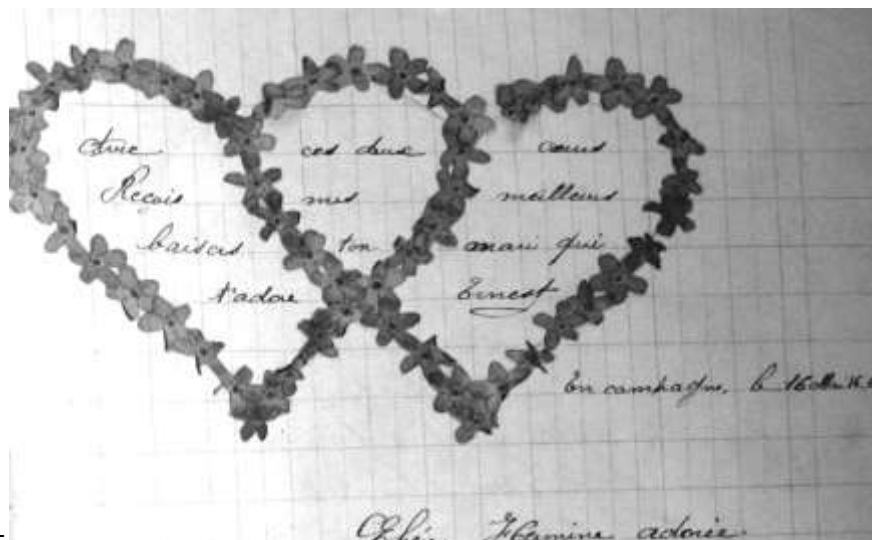 Avec ces deux cœurs
Reçois mes meilleurs
baisers ton mari qui
t'adore Ernest
En campagne, le 16
Hermine adorée